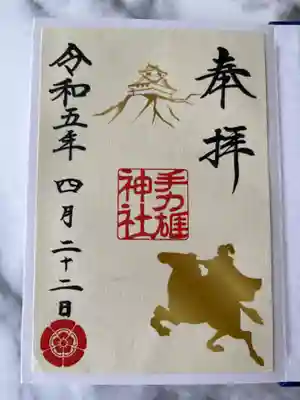 奉拝
手力雄
神社
令和五年 四月二十二日